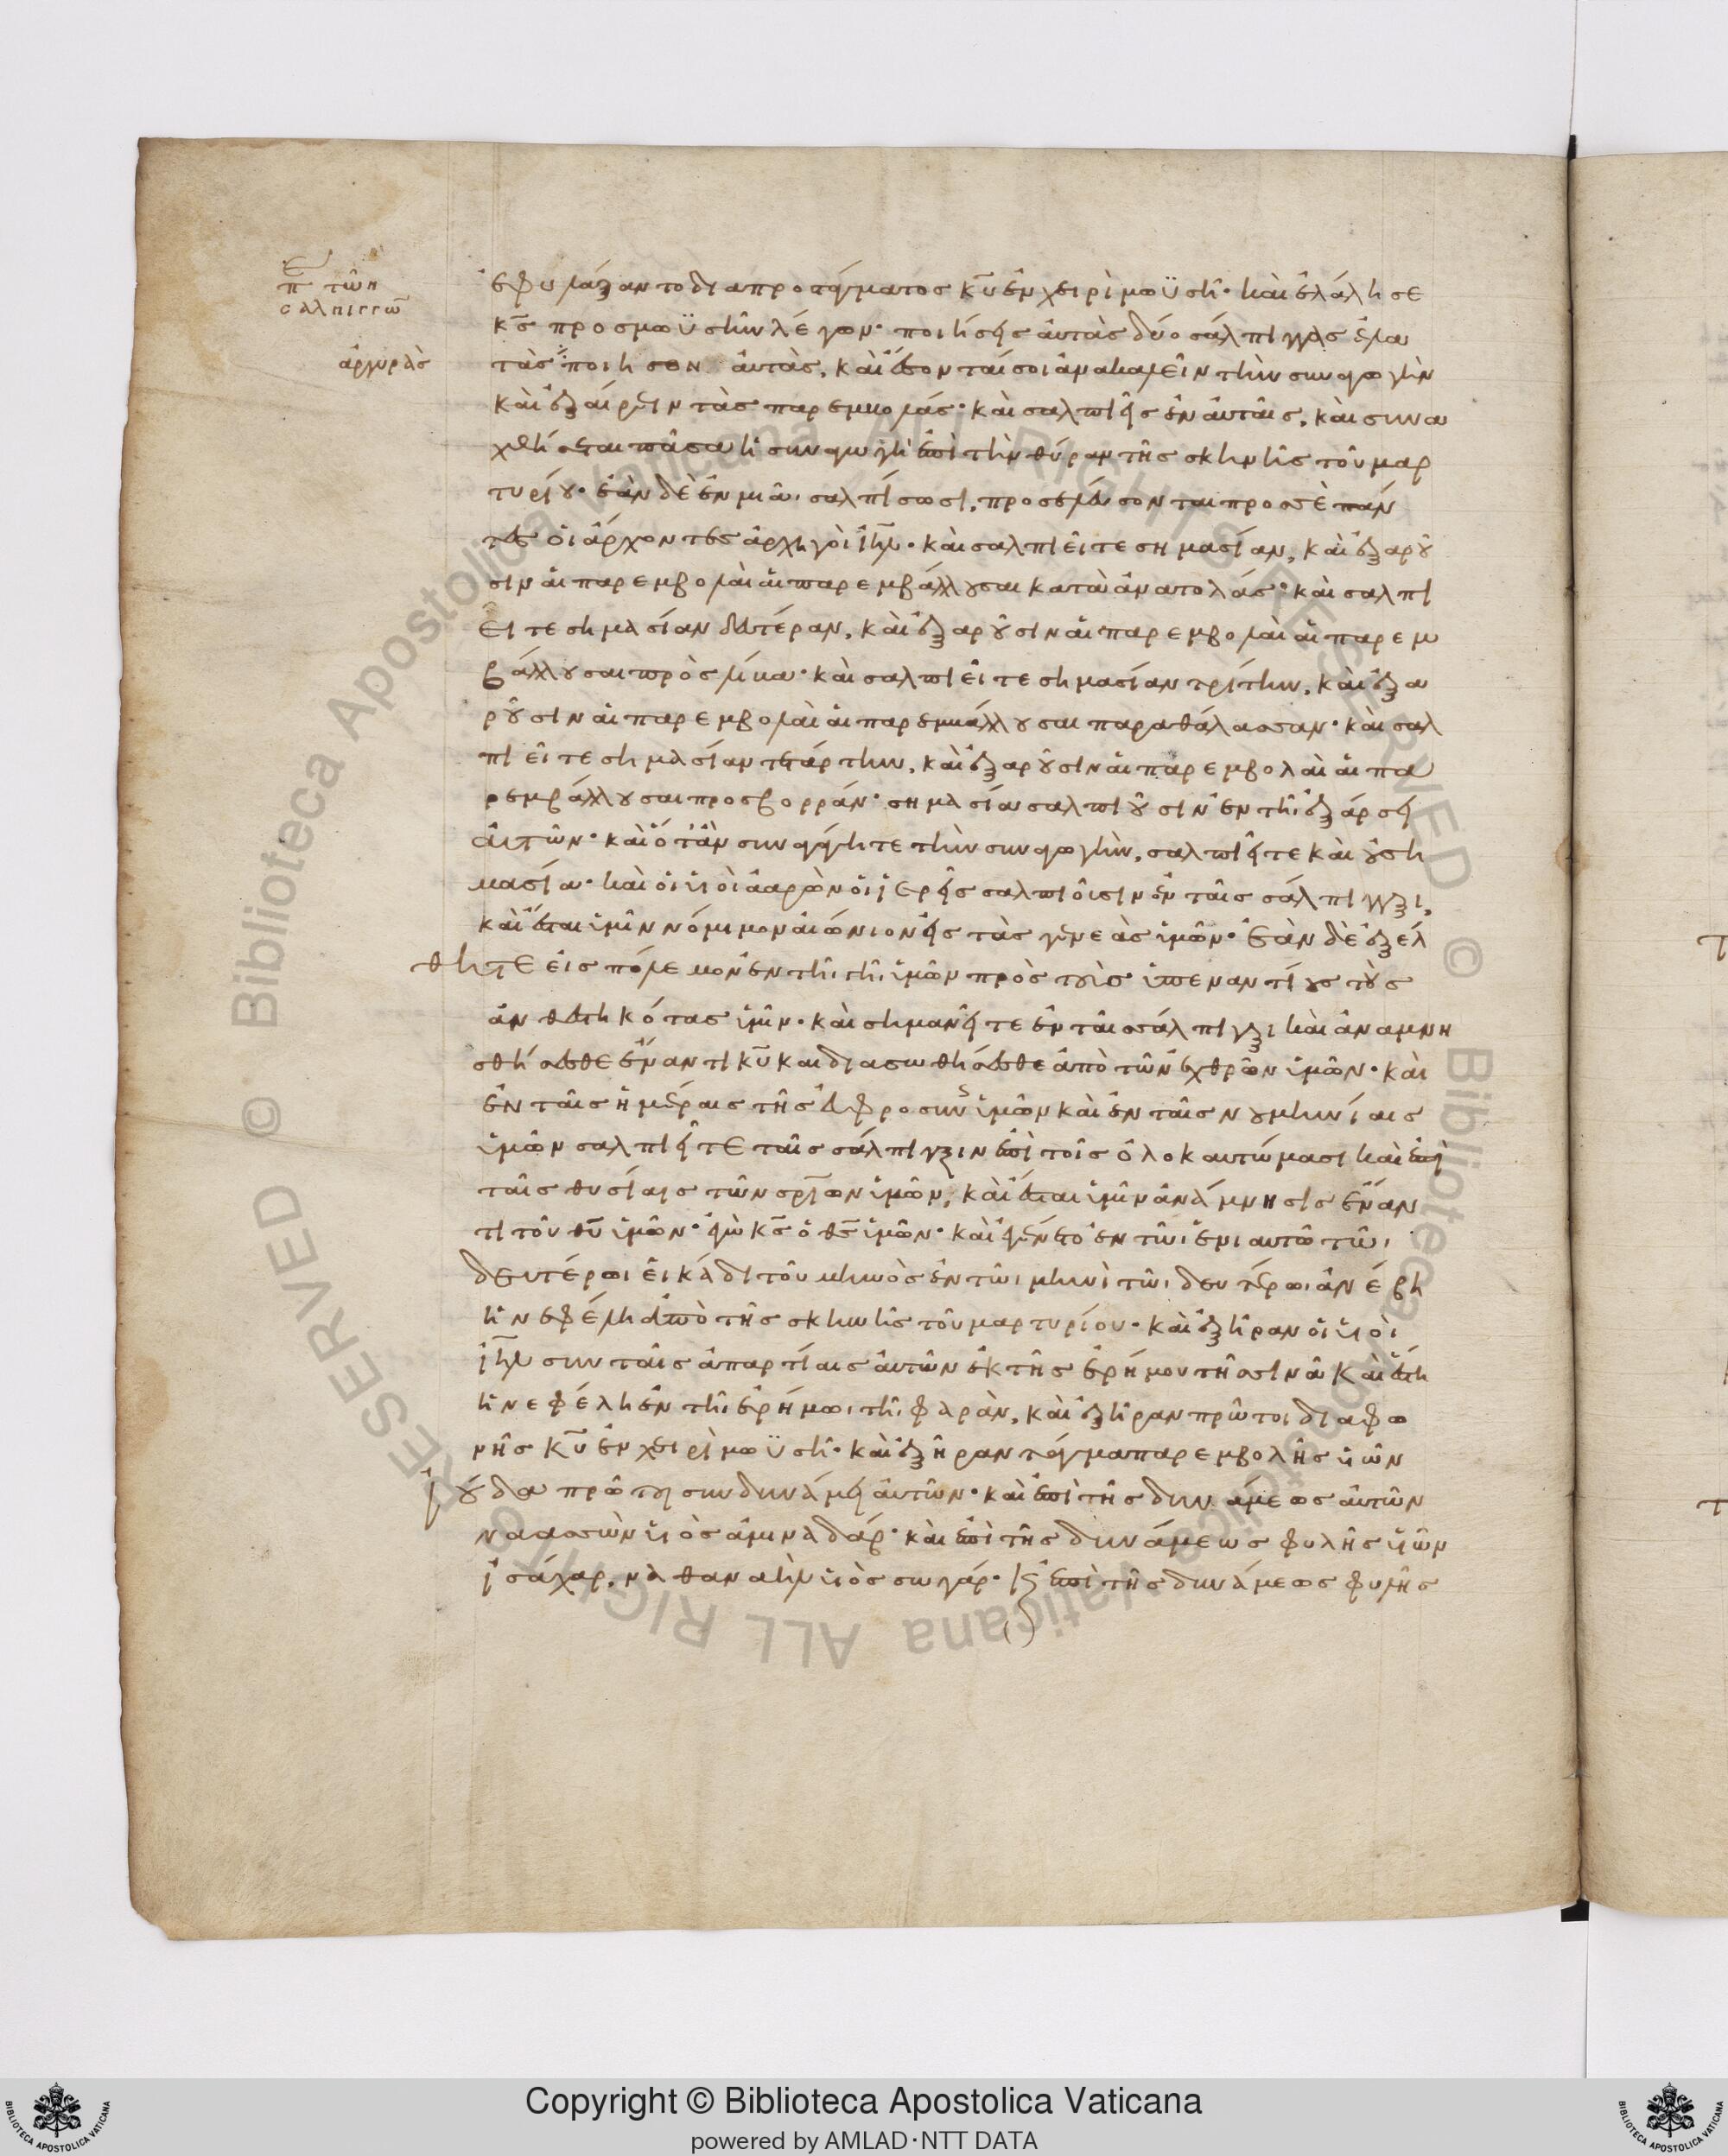 περὶ τῶν
σαλπίγγω̅
ἀργυρὰς
ἐφυλάξαντο διὰ προστάγματος κ̅υ̅ ἐν χειρὶ μωϋσῆ· καὶ ἐλάλησε
κ̅ς̅ προς μωϋσῆν λέγων· ποιήσεις ἀυτὰς δύο σάλπιγγας ἐλα
τὰς ποιησον ἀυτὰς, καὶ ἔσονταί σοι ἀνακαλεῖν τὴν συναγωγὴν
καὶ ἐξαίρειν τὰς παρεμβολάς· καὶ σαλπιεῖς ἐν ἀυταῖς, καὶ συνα
χθήσεται πᾶσα ἡ συναγωγὴ ἐπὶ τὴν θύραν τῆς σκηνῆς τοῦ μαρ
τυρίου· ἐὰν δὲ ἐν μιᾶι σαλπίσωσι, προσελεύσονται προς σὲ πάν
τες ὁι ἄρχοντες ἀρχηγὸι ἰ̅η̅λ̅· καὶ σαλπιεῖτε σημασίαν, καὶ ἐξαροῦ
σιν ἁι παρεμβολαὶ ἁι παρεμβάλλουσαι κατὰ ἀνατολάς· καὶ σαλπι
εῖτε σημασίαν δευτέραν, καὶ ἐξαροῦσιν ἁι παρεμβολαὶ ἁι παρεμ
βάλλουσαι πρὸς λίβα· καὶ σαλπιεῖτε σημασίαν τρίτην, καὶ ἐξα
ροῦσιν ἁι παρεμβολαὶ ἁι παρεμβάλλουσαι παρα θάλασσαν· καὶ σαλ
πιεῖτε σημασίαν τετάρτην, καὶ ἐξαροῦσιν ἁι παρεμβολαὶ ἁι πα
ρεμβάλλουσαι προς βορρᾶν· σημασίαν σαλπιοῦσιν ἐν τῆι ἐξάρσει
ἀυτῶν· καὶ ὅταν συναγάγητε τὴν συναγωγὴν, σαλπιεῖτε καὶ οὐ ση
μασία· καὶ ὁι ὑιὸι ἀαρὼν ὁι ἱερεῖς σαλπιοῦσιν ἐν ταῖς σάλπιγγξι,
καὶ ἔσται ὑμῖν νόμιμον αἰώνιον εἰς τὰς γενεὰς ὑμῶν· ἐὰν δὲ ἐξέλ
θητε εἰς πόλεμον ἐν τῆι γῆι ὑμῶν πρὸς τοὺς ὑπεναντίους τοὺς
ἀνθεστηκότας ὑμῖν· καὶ σημανεῖτε ἐν ταῖς σάλπιγξι καὶ ἀναμνη
σθήσεσθε ἔναντι κ̅υ̅ και διασωθήσεσθε ἀπὸ τῶν ἐχθρῶν ὑμῶν· καὶ
ἐν ταῖς ἡμέραις τῆς ἐυφροσύνης ὑμῶν καὶ ἐν ταῖς νουμηνίαις
ὑμῶν σαλπιεῖτε ταῖς σάλπιγξιν ἐπὶ τοῖς ὁλοκαυτώμασι καὶ ἐπὶ
ταῖς θυσίαις τῶν σρ̅ίων ὑμῶν, καὶ ἔσται ὑμῖν ἀνάμνησις ἔναν
τι τοῦ θ̅υ̅ ὑμῶν· ἐγὼ κ̅ς̅ ὁ θ̅ς̅ ὑμῶν· καὶ ἐγένετο ἐν τῶι ἐνιαυτῶ τῶι
δευτέρωι εἰκάδι τοῦ μηνὸς ἐν τῶι μηνὶ τῶι δευτέρωι ἀνέβη
ἡ νεφέλη ἀπὸ τῆς σκηνῆς τοῦ μαρτυρίου· καὶ ἐξῆραν ὁι ὑιὸι
ἰ̅η̅λ̅ συν ταῖς ἀπαρτίαις ἀυτῶν ἐκ τῆς ἐρήμου τῆς σινᾶ καὶ ἔστη
ἡ νεφέλη ἐν τῆι ἐρήμωι τῆι φαρὰν, καὶ ἐξῆραν πρῶτοι δια φω
νῆς κ̅υ̅ ἐν χειρὶ μωϋσῆ· καὶ ἐξῆραν τάγμα παρεμβολῆς ὑιῶν
ἰούδα πρῶτοι συν δυνάμει ἀυτῶν· καὶ ἐπὶ τῆς δυνάμεως ἀυτῶν
ναασσὼν ὑιὸς ἀμιναδάβ· καὶ ἐπὶ τῆς δυνάμεως φυλῆς ὑιῶν
ἰσάχαρ, ναθαναὴλ ὑιὸς σωγάρ· κ̀ ἐπὶ τῆς δυνάμεως φυλῆς
Copyright © Biblioteca Apostolica Vaticana
powered by AMLAD·NTT DATA